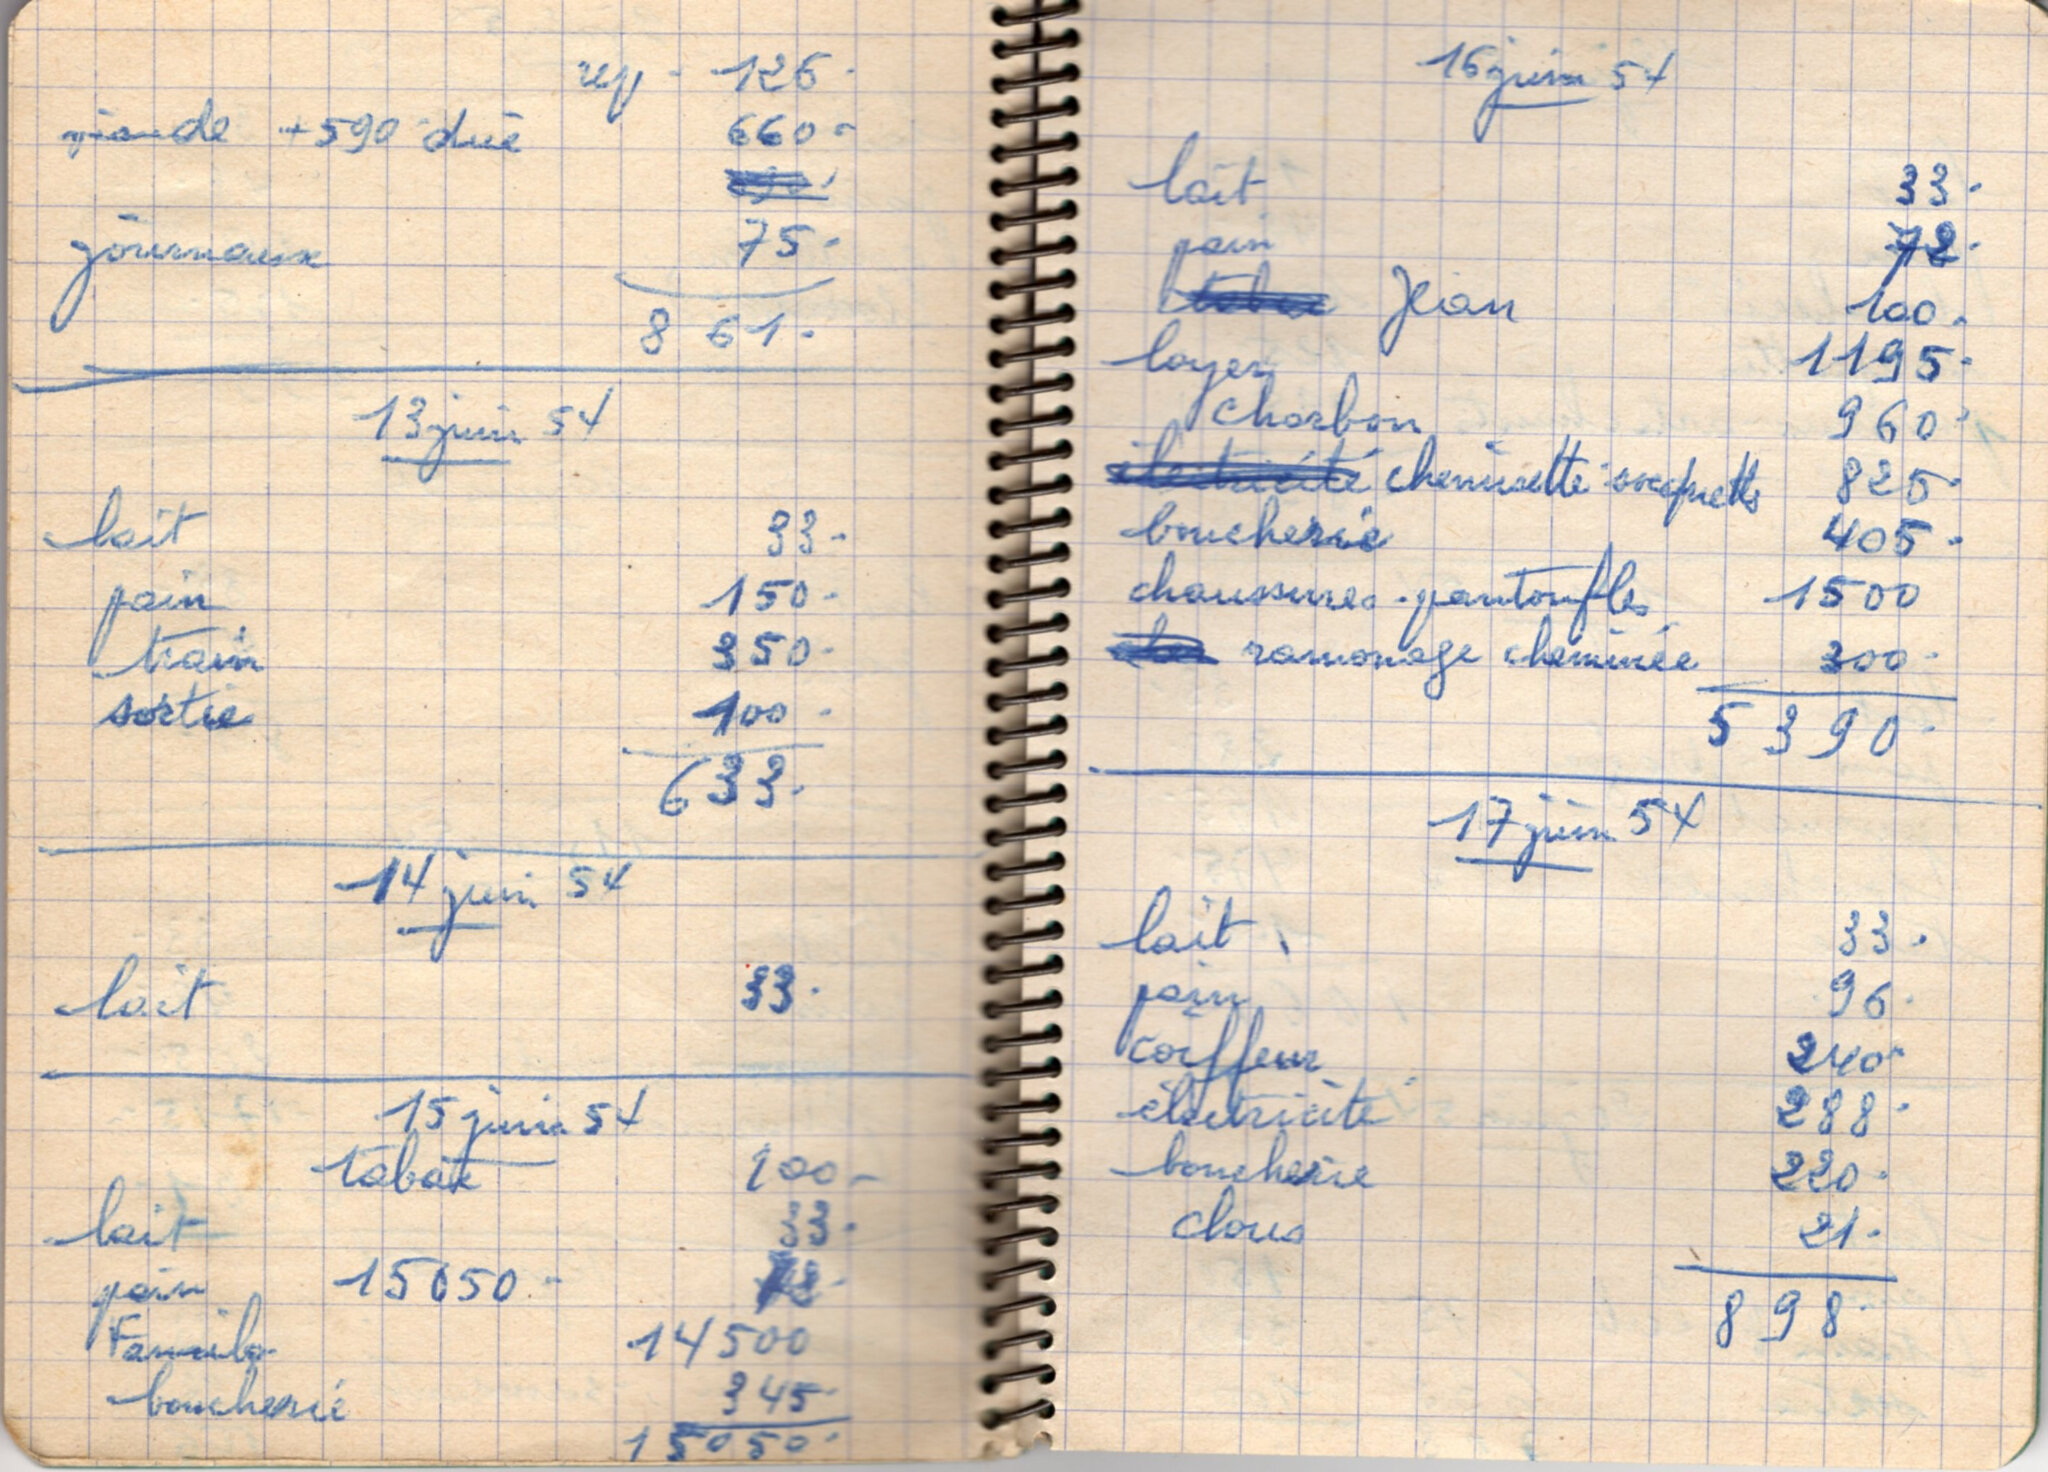 rep - 126 -
viande + 590 dûe 660 -
journaux 75 -
861 -
13 juin 54
lait 33 -
pain 150 -
train 350 -
sortie 100 -
633 -
14 juin 54
lait 33 -
15 juin 54
tabac 100 -
lait 33 -
pain 15050 - 72 -
Familia 14500
boucherie 345 -
15050 -
16 juin 54
lait 33 -
pain 72 -
tabac Jean 100 -
loyer 1195 -
charbon 960 -
électricité chemisette socquette 825 -
boucherie 405 -
chaussures - pantoufles 1500
ramonage cheminée 300 -
5390 -
17 juin 54
lait 33 -
pain 96 -
coiffeur 240 -
électricité 288 -
boucherie 220 -
clous 21 -
898 -